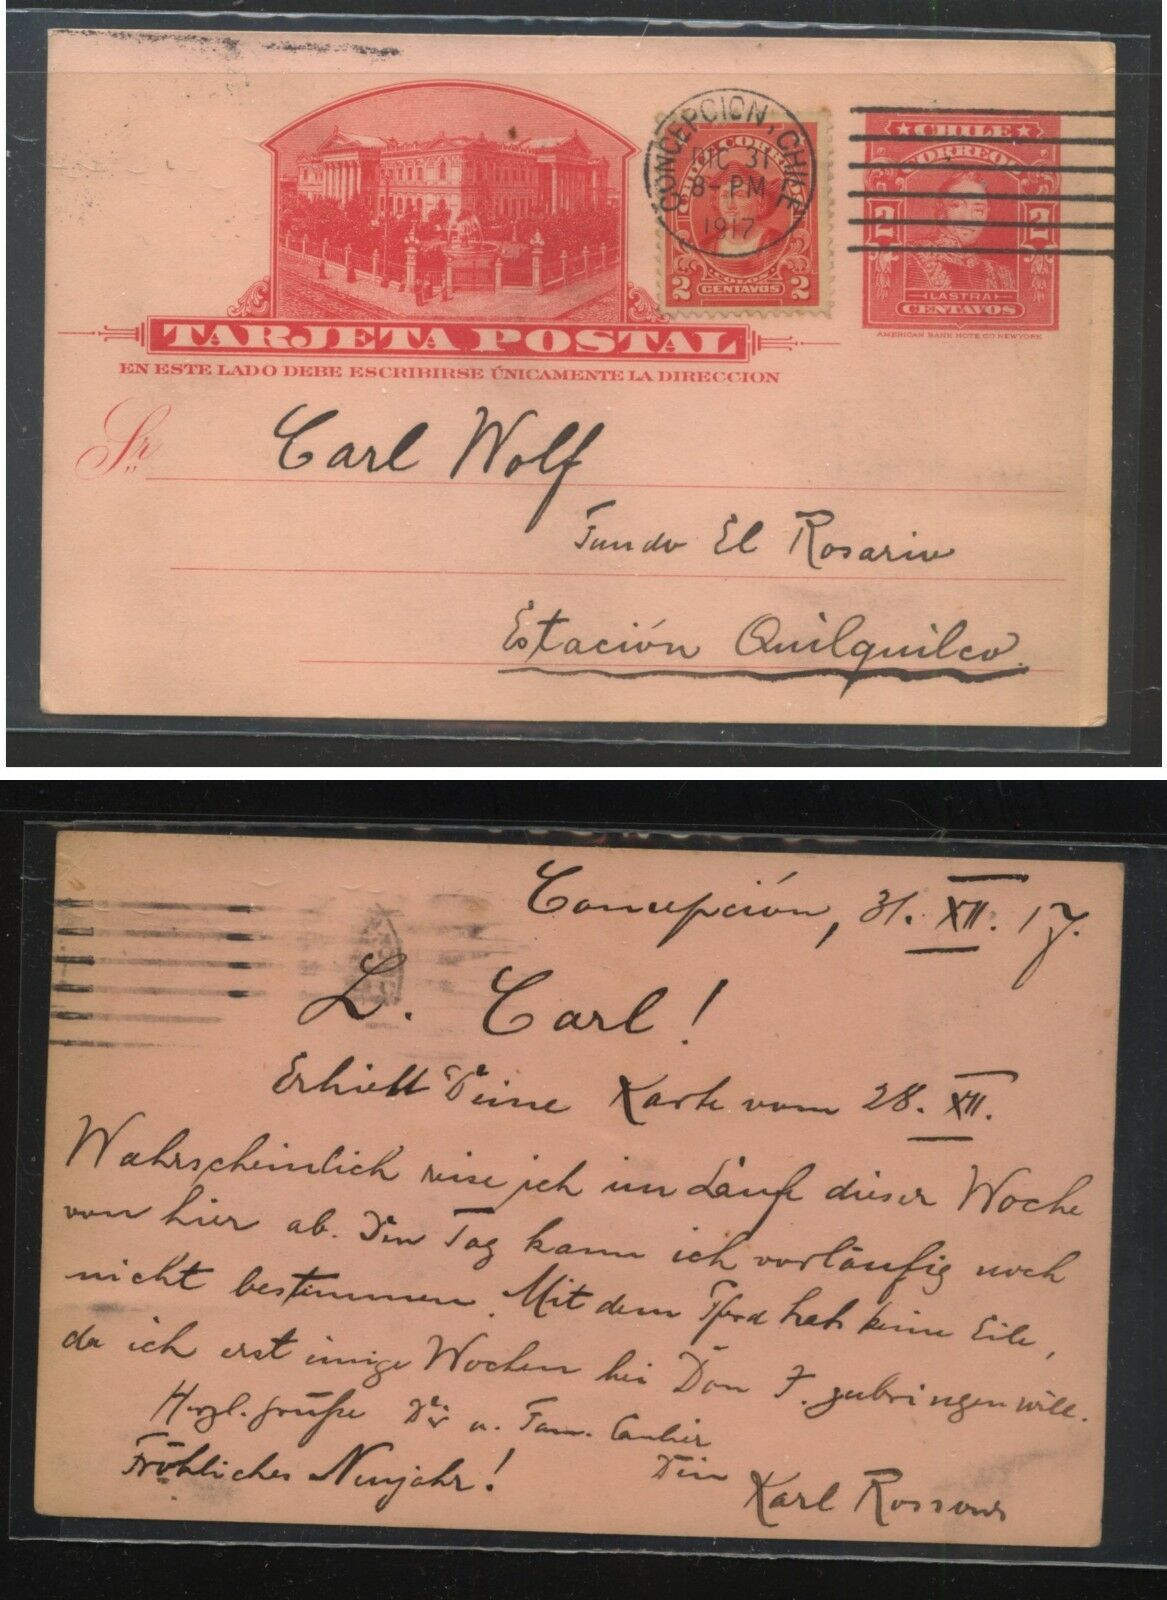 CHILE CORREOS
COLON
2 CENTAVOS 2
CONCEPCION, CHILE
DIC 31
8- PM
1917
CHILE
CORREOS
2 2
LASTRA
CENTAVOS
AMERICAN BANK NOTE CO. NEW YORK
TARJETA POSTAL
EN ESTE LADO DEBE ESCRIBIRSE ÚNICAMENTE LA DIRECCION
Sr. Carl Wolf
Fundo El Rosario
Estación Quilquilco.
Concepción, 31. XII. 17.
L. Carl!
Erhielt Deine Karte vom 28. XII.
Wahrscheinlich reise ich im Laufe dieser Woche
von hier ab. Den Tag kann ich vorläufig noch
nicht bestimmen. Mit dem Pferd hats keine Eile,
da ich erst einige Wochen bei Don F. zubringen will.
Herzl. Grüße Dir u. Fam.
Fröhliches Neujahr! Dein
Karl